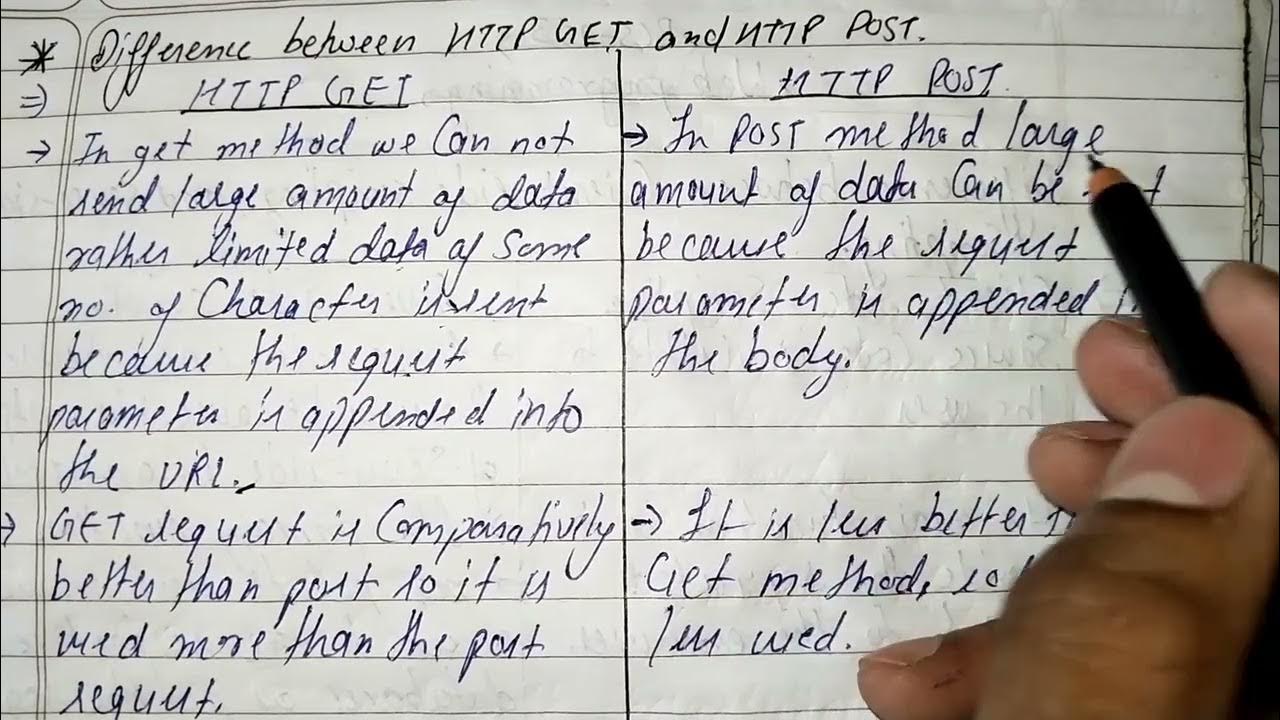 * Difference between HTTP GET and HTTP POST.
⇒ HTTP GET
→ In get method we Can not
send large amount of data
rather limited data of Some
no. of Character is sent
because the request
parameter is appended into
the URL.
→ GET request is Comparatively
better than post so it is
used more than the post
request.
HTTP POST.
→ In POST method large
amount of data Can be
because the request
parameter is appended
the body.
→ It is less better
Get method, so
less used.